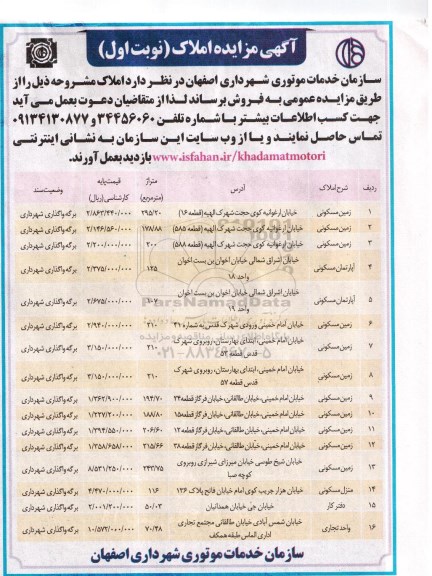 آگهی مزایده املاک (نوبت اول)
سازمان خدمات موتوری شهرداری اصفهان در نظر دارد املاک مشروحه ذیل را از
طریق مزایده عمومی به فروش برساند لذا از متقاضیان دعوت بعمل می آید
جهت کسب اطلاعات بیشتر با شماره تلفن ۳۴۴۵۶۰۶۰ و ۰۹۱۳۴۱۳۰۸۷۷
تماس حاصل نمایند و یا از وب سایت این سازمان به نشانی اینترنتی
www.isfahan.ir/khadamatmotori بازدید بعمل آورند.
ردیف شرح املاک آدرس متراژ (مترمربع) قیمت پایه کارشناسی (ریال) وضعیت سند
۱ زمین مسکونی خیابان ارغوانیه کوی حجت شهرک الهیه (قطعه ۱۶) ۲۹۵/۲۰ ۲/۸۶۳/۴۴۰/۰۰۰ برگه واگذاری شهرداری
۲ زمین مسکونی خیابان ارغوانیه کوی حجت شهرک الهیه (قطعه ۵۸۵) ۱۷۸/۸۸ ۲/۱۴۶/۵۶۰/۰۰۰ برگه واگذاری شهرداری
۳ زمین مسکونی خیابان ارغوانیه کوی حجت شهرک الهیه (قطعه ۵۸۸) ۲۰۰ ۲/۲۰۰/۰۰۰/۰۰۰ برگه واگذاری شهرداری
۴ آپارتمان مسکونی خیابان اشراق شمالی خیابان اخوان بن بست اخوان واحد ۱۸ ۱۲۵ ۲/۳۷۵/۰۰۰/۰۰۰ برگه واگذاری شهرداری
۵ آپارتمان مسکونی خیابان اشراق شمالی خیابان اخوان بن بست اخوان واحد ۱۹ ۲/۶۷۵/۰۰۰/۰۰۰ برگه واگذاری شهرداری
۶ زمین مسکونی خیابان امام خمینی ورودی شهرک قدس به شماره ۴۱ ۲۱۰ ۲/۹۴۰/۰۰۰/۰۰۰ برگه واگذاری شهرداری
۷ زمین مسکونی خیابان امام خمینی، ابتدای بهارستان، روبروی شهرک قدس قطعه ۵۳ ۲۱۰ ۳/۱۵۰/۰۰۰/۰۰۰ برگه واگذاری شهرداری
۸ زمین مسکونی خیابان امام خمینی، ابتدای بهارستان، روبروی شهرک قدس قطعه ۵۷ ۲۱۰ ۴/۱۵۰/۰۰۰/۰۰۰ برگه واگذاری شهرداری
۹ زمین مسکونی خیابان امام خمینی، خیابان طالقانی، خیابان فرگاز قطعه ۲۴ ۱۹۴/۷۰ ۱/۳۶۲/۹۰۰/۰۰۰ برگه واگذاری شهرداری
۱۰ زمین مسکونی خیابان امام خمینی، خیابان طالقانی، خیابان فرگاز قطعه ۱۵ ۱۸۸/۸۰ ۱/۲۲۷/۲۰۰/۰۰۰ برگه واگذاری شهرداری
۱۱ زمین مسکونی خیابان امام خمینی، خیابان طالقانی، خیابان فرگاز قطعه ۱۲ ۲۰۶/۶۰ ۱/۳۹۴/۵۵۰/۰۰۰ برگه واگذاری شهرداری
۱۲ زمین مسکونی خیابان امام خمینی، خیابان طالقانی، خیابان فرگاز قطعه ۳۸ ۲۱۵/۶۶ ۱/۳۵۸/۶۵۸/۰۰۰ برگه واگذاری شهرداری
۱۳ زمین مسکونی خیابان شیخ طوسی خیابان میرزای شیرازی روبروی کوچه صبا ۲۴۳/۷۵ ۸/۵۳۱/۲۵۰/۰۰۰ برگه واگذاری شهرداری
۱۴ منزل مسکونی خیابان هزار جریب کوی امام خیابان فاتح پلاک ۱۳۶ ۱۱۶ ۴/۴۷۰/۰۰۰/۰۰۰ برگه واگذاری شهرداری
۱۵ دفتر کار خیابان جی خیابان همدانیان ۵۰/۰۳ ۲/۰۰۱/۲۰۰/۰۰۰ برگه واگذاری شهرداری
۱۶ واحد تجاری خیابان شمس آبادی خیابان طالقانی مجتمع تجاری اداری الماس طبقه همکف ۷۰/۴۸ ۱۰/۵۷۲/۰۰۰/۰۰۰ برگه واگذاری شهرداری
سازمان خدمات موتوری شهرداری اصفهان